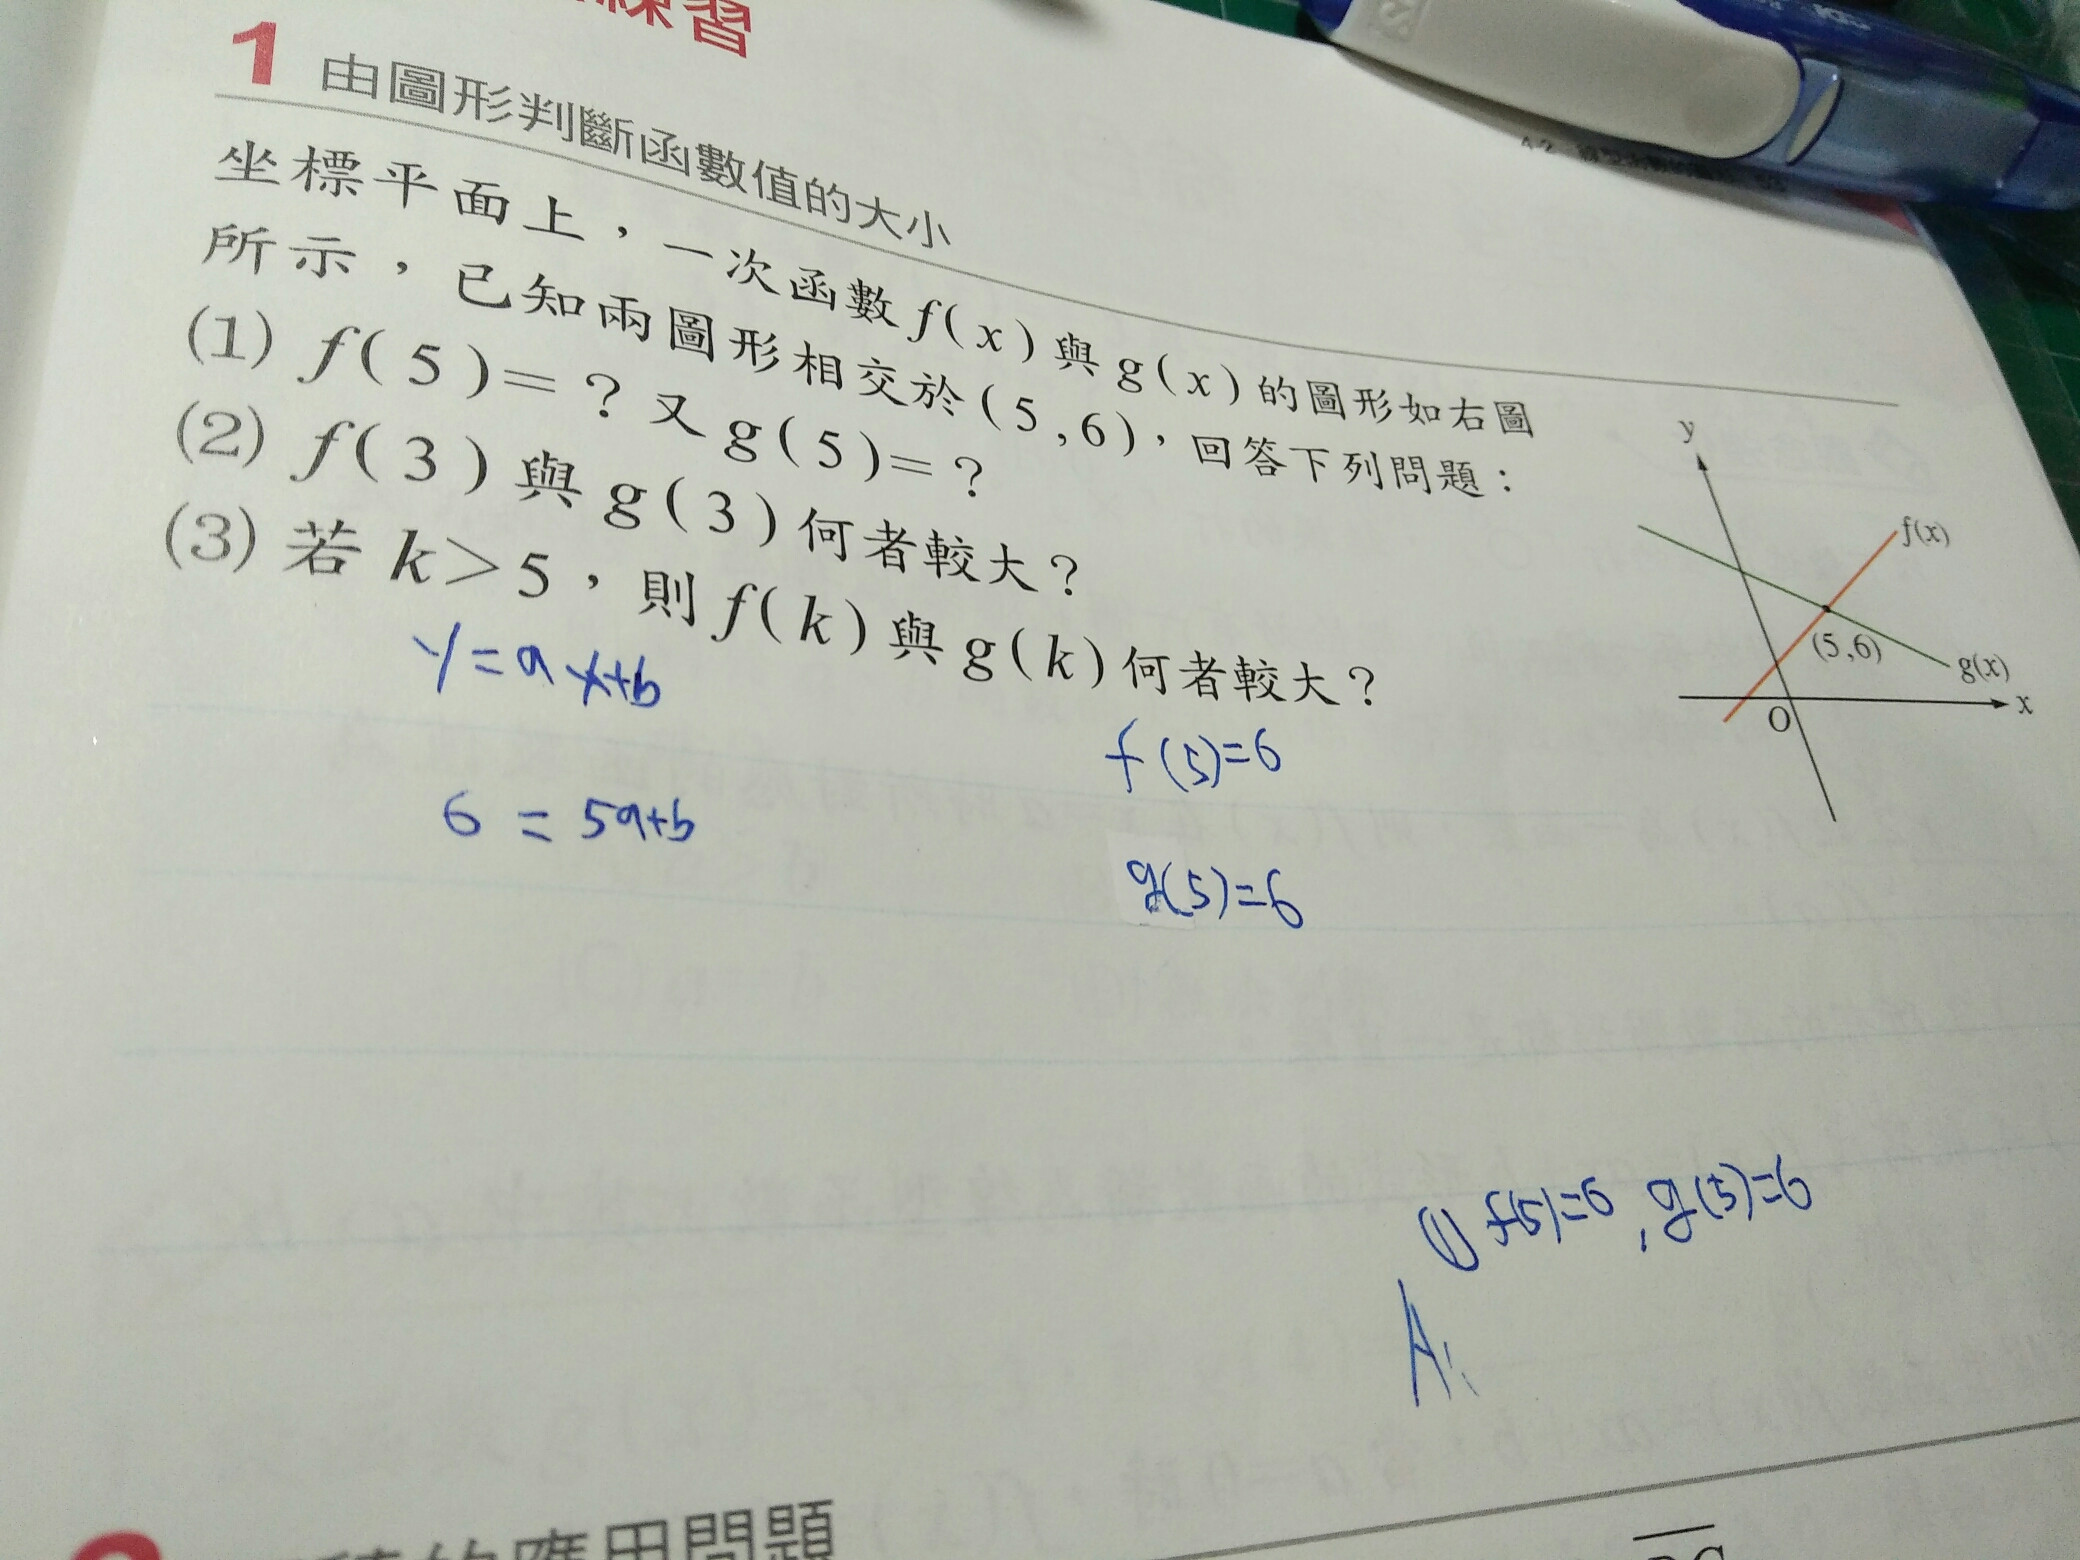 練習
1 由圖形判斷函數值的大小
坐標平面上，一次函數 f(x) 與 g(x) 的圖形如右圖
所示，已知兩圖形相交於 (5,6)，回答下列問題：
(1) f(5)=？又 g(5)=？
(2) f(3) 與 g(3) 何者較大？
(3) 若 k>5，則 f(k) 與 g(k) 何者較大？
y
f(x)
(5,6)
g(x)
O
x
y=ax+b
f(5)=6
6=5a+b
g(5)=6
(1) f(5)=6, g(5)=6
A:
的應用問題